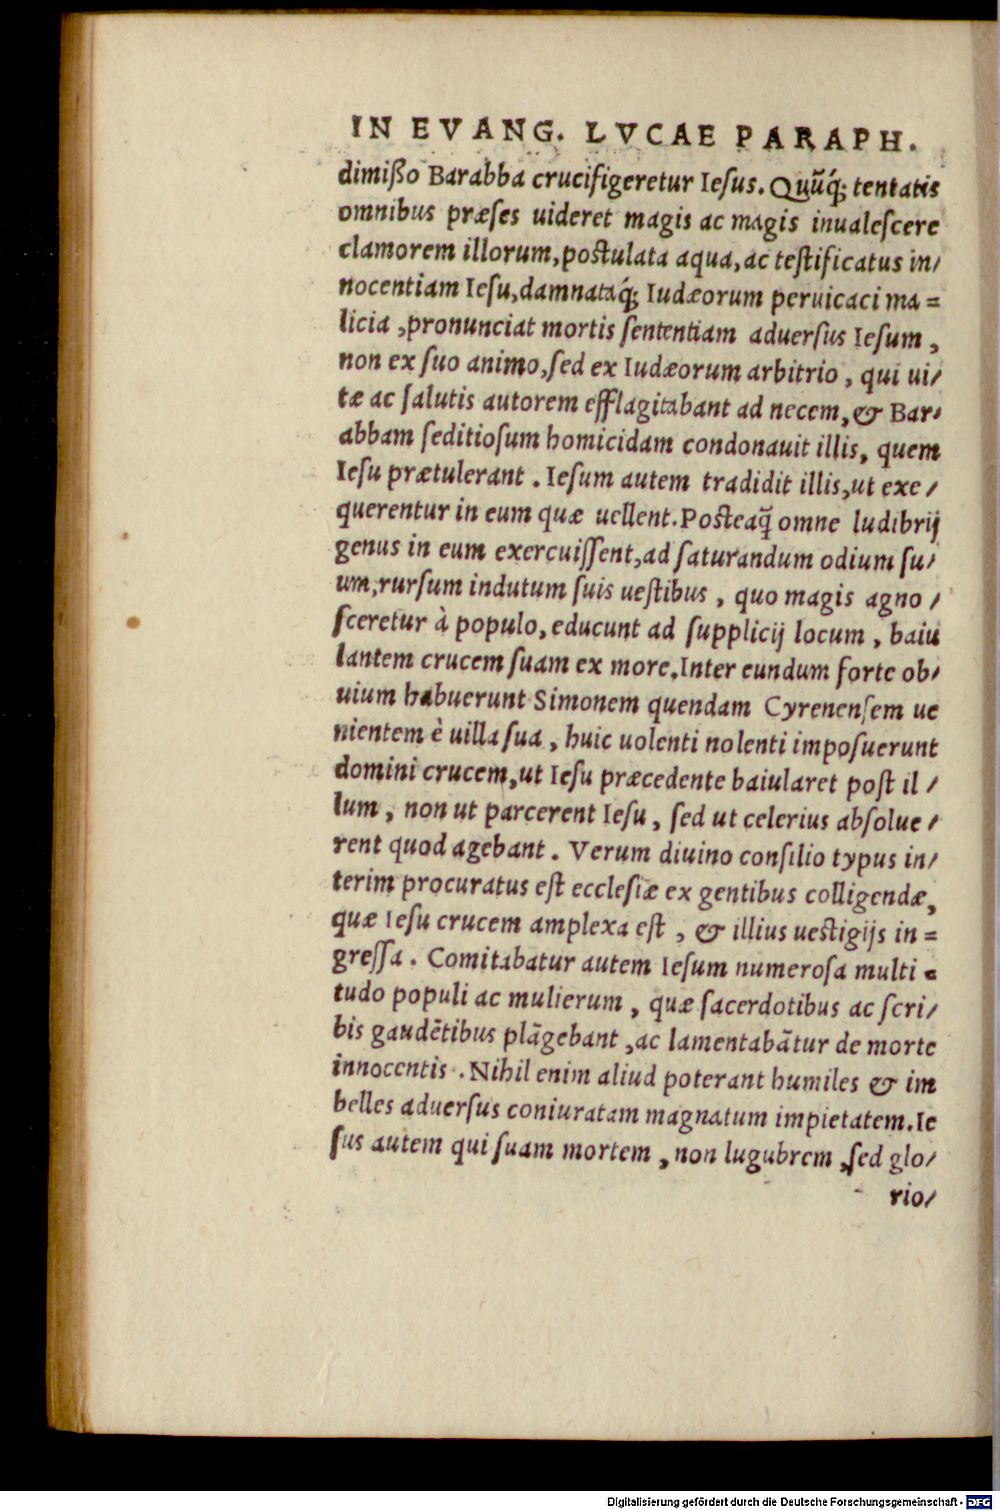 IN EVANG. LVCAE PARAPH.
dimißo Barabba crucifigeretur Iesus. Quũq́; tentatis
omnibus præses uideret magis ac magis inualescere
clamorem illorum, postulata aqua, ac testificatus in/
nocentiam Iesu, damnataq́; Iudæorum peruicaci ma=
licia, pronunciat mortis sententiam aduersus Iesum,
non ex suo animo, sed ex Iudæorum arbitrio, qui ui/
tæ ac salutis autorem efflagitabant ad necem, & Bar/
abbam seditiosum homicidam condonauit illis, quem
Iesu prætulerant. Iesum autem tradidit illis, ut exe/
querentur in eum quæ uellent. Posteaq̃ omne ludibrij
genus in eum exercuissent, ad saturandum odium su/
um, rursum indutum suis uestibus, quo magis agno/
sceretur à populo, educunt ad supplicij locum, baiu
lantem crucem suam ex more. Inter eundum forte ob/
uium habuerunt Simonem quendam Cyrenensem ue
nientem è uilla sua, huic uolenti nolenti imposuerunt
domini crucem, ut Iesu præcedente baiularet post il/
lum, non ut parcerent Iesu, sed ut celerius absolue/
rent quod agebant. Verum diuino consilio typus in/
terim procuratus est ecclesiæ ex gentibus colligendæ,
quæ Iesu crucem amplexa est, & illius uestigijs in=
gressa. Comitabatur autem Iesum numerosa multi=
tudo populi ac mulierum, quæ sacerdotibus ac scri/
bis gaudẽtibus plãgebant, ac lamentabãtur de morte
innocentis. Nihil enim aliud poterant humiles & im
belles aduersus coniuratam magnatum impietatem. Ie
sus autem qui suam mortem, non lugubrem, sed glo/
rio/
Digitalisierung gefördert durch die Deutsche Forschungsgemeinschaft - DFG